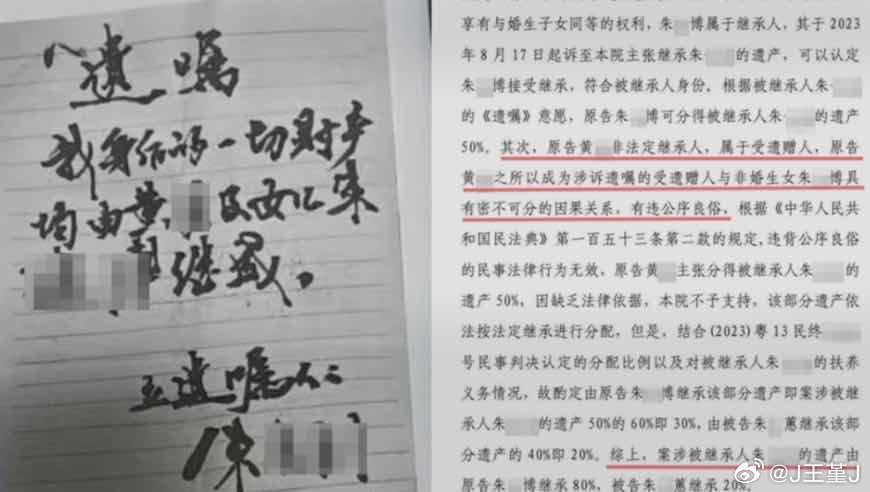 遗嘱
我身后的一切财产
均由黄 及女儿朱
继承。
立遗嘱人：
朱
享有与婚生子女同等的权利，朱 博属于继承人，其于 2023
年 8 月 17 日起诉至本院主张继承朱 的遗产，可以认定
朱 博接受继承，符合被继承人身份，根据被继承人朱
的《遗嘱》意愿，原告朱 博可分得被继承人朱 的遗产
50%。其次，原告黄 非法定继承人，属于受遗赠人，原告
黄 之所以成为涉诉遗嘱的受遗赠人与非婚生女朱 博具
有密不可分的因果关系，有违公序良俗，根据《中华人民共
和国民法典》第一百五十三条第二款的规定，违背公序良俗
的民事法律行为无效，原告黄 主张分得被继承人朱 的
遗产 50%，因缺乏法律依据，本院不予支持，该部分遗产依
法按法定继承进行分配，但是，结合(2023)粤 13 民终
号民事判决认定的分配比例以及对被继承人朱 的扶养
义务情况，故酌定由原告朱 博继承该部分遗产即案涉被继
承人朱 的遗产 50%的 60%即 30%，由被告朱 蕙继承该部
分遗产的 40%即 20%。综上，案涉被继承人朱 的遗产由
原告朱 博继承 80%，被告朱 蕙继承 20%。
@J王堇J